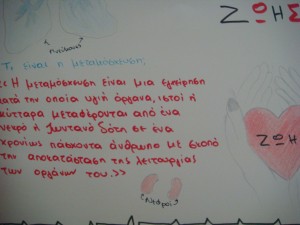 ΖΩΗΣ
πνεύμονας
Τι είναι η μεταμόσχευση;
<< Η μεταμόσχευση είναι μια εγχείρηση
κατά την οποία υγιή όργανα, ιστοί ή
κύτταρα μεταφέρονται από ένα
νεκρό ή ζωντανό δότη σε ένα
χρονίως πάσχοντα άνθρωπο με σκοπό
την αποκατάσταση της λειτουργίας
των οργάνων του.>>
ΖΩΗΣ
νεφροί